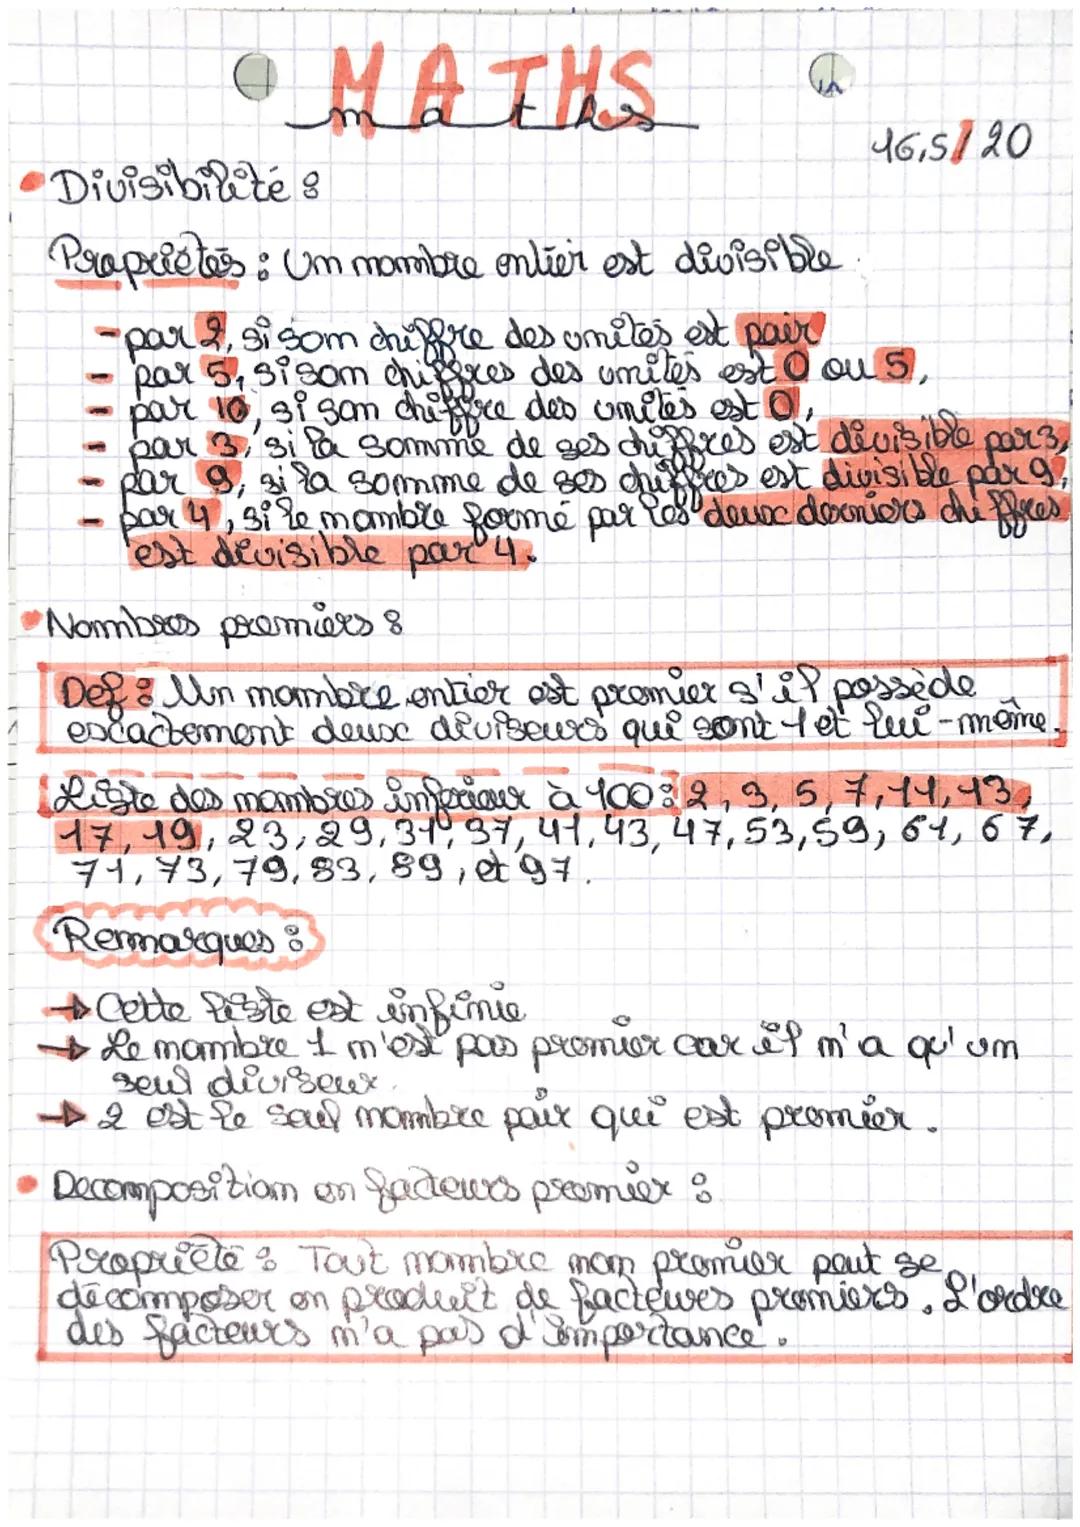 MATHS
maths
16,5/20
Divisibilité :
Propriétés : Un nombre entier est divisible
- par 2, si son chiffre des unités est pair
- par 5, si son chiffres des unités est 0 ou 5,
- par 10, si son chiffre des unités est 0,
- par 3, si la somme de ses chiffres est divisible par 3,
- par 9, si la somme de ses chiffres est divisible par 9,
- par 4, si le nombre formé par les deux derniers chiffres
est divisible par 4.
Nombres premiers :
Def : Un nombre entier est premier s'il possède
exactement deux diviseurs qui sont 1 et lui-même.
Liste des nombres inferieur à 100 : 2, 3, 5, 7, 11, 13,
17, 19, 23, 29, 31, 37, 41, 43, 47, 53, 59, 61, 67,
71, 73, 79, 83, 89, et 97.
Remarques :
→ Cette liste est infinie
→ Le nombre 1 n'est pas premier car il n'a qu'un
seul diviseur.
→ 2 est le seul nombre pair qui est premier.
Decomposition en facteurs premier :
Propriété : Tout nombre non premier peut se
décomposer en produit de facteurs premiers. L'ordre
des facteurs n'a pas d'importance.